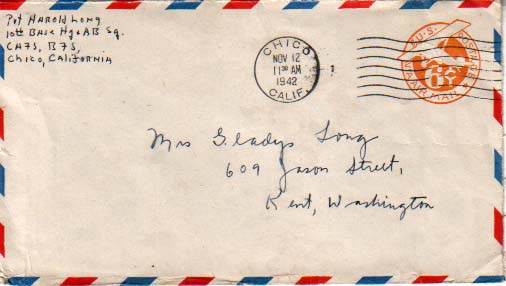 Pvt Harold Long
10th Base Hq & AB Sq.
CAFS, BFS,
Chico, California
CHICO
NOV 12
11 30 AM
1942
CALIF.
1
U.S. POSTAGE
6¢
AIR MAIL
Mrs Gladys Long
609 Jason Street,
Kent, Washington